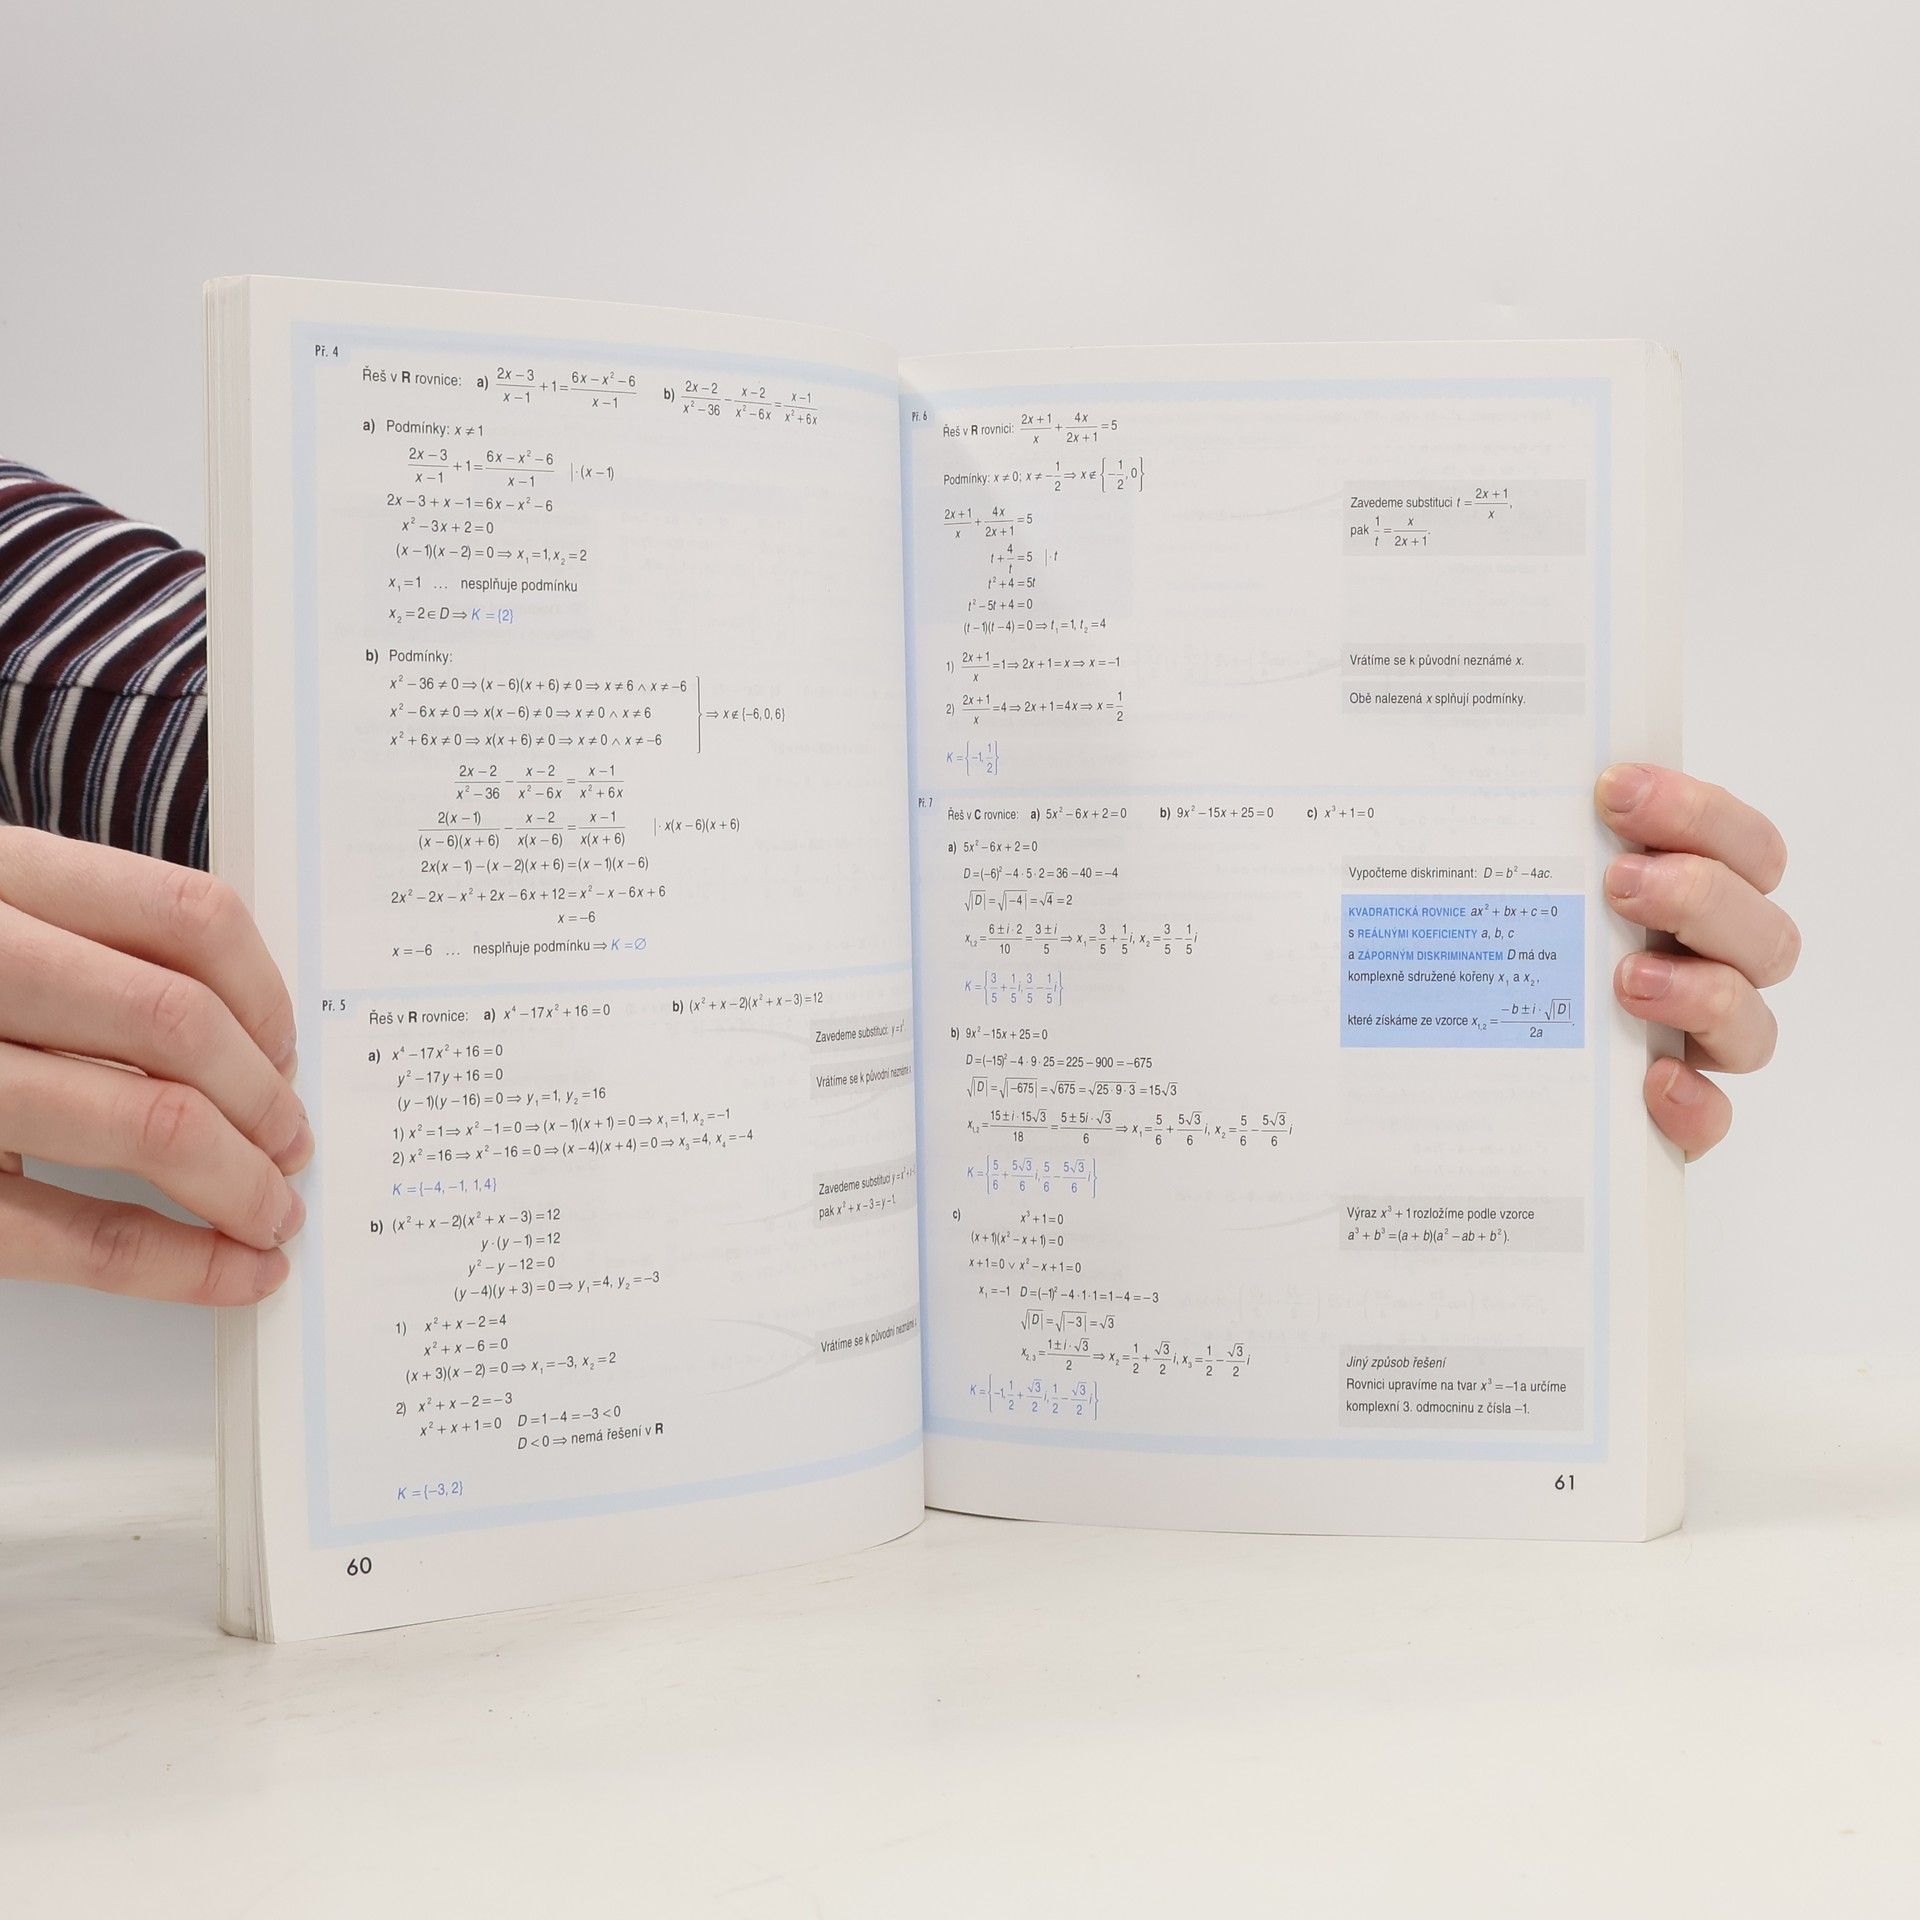 Př. 4
Řeš v R rovnice: a) (2x − 3)/(x − 1) + 1 = (6x − x² − 6)/(x − 1) b) (2x − 2)/(x² − 36) − (x − 2)/(x² − 6x) = (x − 1)/(x² + 6x)
a) Podmínky: x ≠ 1
(2x − 3)/(x − 1) + 1 = (6x − x² − 6)/(x − 1) | · (x − 1)
2x − 3 + x − 1 = 6x − x² − 6
x² − 3x + 2 = 0
(x − 1)(x − 2) = 0 ⇒ x₁ = 1, x₂ = 2
x₁ = 1 … nesplňuje podmínku
x₂ = 2 ∈ D ⇒ K = {2}
b) Podmínky:
x² − 36 ≠ 0 ⇒ (x − 6)(x + 6) ≠ 0 ⇒ x ≠ 6 ∧ x ≠ −6
x² − 6x ≠ 0 ⇒ x(x − 6) ≠ 0 ⇒ x ≠ 0 ∧ x ≠ 6 ⇒ x ∉ {−6, 0, 6}
x² + 6x ≠ 0 ⇒ x(x + 6) ≠ 0 ⇒ x ≠ 0 ∧ x ≠ −6
(2x − 2)/(x² − 36) − (x − 2)/(x² − 6x) = (x − 1)/(x² + 6x)
2(x − 1)/((x − 6)(x + 6)) − (x − 2)/(x(x − 6)) = (x − 1)/(x(x + 6)) | · x(x − 6)(x + 6)
2x(x − 1) − (x − 2)(x + 6) = (x − 1)(x − 6)
2x² − 2x − x² + 2x − 6x + 12 = x² − x − 6x + 6
x = −6
x = −6 … nesplňuje podmínku ⇒ K = ∅
Př. 5
Řeš v R rovnice: a) x⁴ − 17x² + 16 = 0 b) (x² + x − 2)(x² + x − 3) = 12
a) x⁴ − 17x² + 16 = 0 Zavedeme substituci: y = x².
y² − 17y + 16 = 0
(y − 1)(y − 16) = 0 ⇒ y₁ = 1, y₂ = 16 Vrátíme se k původní neznámé
1) x² = 1 ⇒ x² − 1 = 0 ⇒ (x − 1)(x + 1) = 0 ⇒ x₁ = 1, x₂ = −1
2) x² = 16 ⇒ x² − 16 = 0 ⇒ (x − 4)(x + 4) = 0 ⇒ x₃ = 4, x₄ = −4
K = {−4, −1, 1, 4}
b) (x² + x − 2)(x² + x − 3) = 12 Zavedeme substituci y = x² + x
y · (y − 1) = 12 pak x² + x − 3 = y − 1.
y² − y − 12 = 0
(y − 4)(y + 3) = 0 ⇒ y₁ = 4, y₂ = −3
1) x² + x − 2 = 4 Vrátíme se k původní neznámé
x² + x − 6 = 0
(x + 3)(x − 2) = 0 ⇒ x₁ = −3, x₂ = 2
2) x² + x − 2 = −3
x² + x + 1 = 0 D = 1 − 4 = −3 < 0
D < 0 ⇒ nemá řešení v R
K = {−3, 2}
60
Př. 6
Řeš v R rovnici: (2x + 1)/x + 4x/(2x + 1) = 5
Podmínky: x ≠ 0; x ≠ −1/2 ⇒ x ∉ {−1/2, 0}
(2x + 1)/x + 4x/(2x + 1) = 5
Zavedeme substituci t = (2x + 1)/x,
pak 1/t = x/(2x + 1).
t + 4/t = 5 | · t
t² + 4 = 5t
t² − 5t + 4 = 0
(t − 1)(t − 4) = 0 ⇒ t₁ = 1, t₂ = 4
1) (2x + 1)/x = 1 ⇒ 2x + 1 = x ⇒ x = −1 Vrátíme se k původní neznámé x.
2) (2x + 1)/x = 4 ⇒ 2x + 1 = 4x ⇒ x = 1/2 Obě nalezená x splňují podmínky.
K = {−1, 1/2}
Př. 7
Řeš v C rovnice: a) 5x² − 6x + 2 = 0 b) 9x² − 15x + 25 = 0 c) x³ + 1 = 0
a) 5x² − 6x + 2 = 0
D = (−6)² − 4 · 5 · 2 = 36 − 40 = −4 Vypočteme diskriminant: D = b² − 4ac.
√|D| = √|−4| = √4 = 2
x₁,₂ = (6 ± i · 2)/10 = (3 ± i)/5 ⇒ x₁ = 3/5 + 1/5 i, x₂ = 3/5 − 1/5 i
K = {3/5 + 1/5 i, 3/5 − 1/5 i}
KVADRATICKÁ ROVNICE ax² + bx + c = 0
s REÁLNÝMI KOEFICIENTY a, b, c
a ZÁPORNÝM DISKRIMINANTEM D má dva
komplexně sdružené kořeny x₁ a x₂,
které získáme ze vzorce x₁,₂ = (−b ± i · √|D|)/2a.
b) 9x² − 15x + 25 = 0
D = (−15)² − 4 · 9 · 25 = 225 − 900 = −675
√|D| = √|−675| = √675 = √25 · 9 · 3 = 15√3
x₁,₂ = (15 ± i · 15√3)/18 = (5 ± 5i · √3)/6 ⇒ x₁ = 5/6 + 5√3/6 i, x₂ = 5/6 − 5√3/6 i
K = {5/6 + 5√3/6 i, 5/6 − 5√3/6 i}
c) x³ + 1 = 0
(x + 1)(x² − x + 1) = 0
Výraz x³ + 1 rozložíme podle vzorce
a³ + b³ = (a + b)(a² − ab + b²).
x + 1 = 0 ∨ x² − x + 1 = 0
x₁ = −1 D = (−1)² − 4 · 1 · 1 = 1 − 4 = −3
√|D| = √|−3| = √3
x₂,₃ = (1 ± i · √3)/2 ⇒ x₂ = 1/2 + √3/2 i, x₃ = 1/2 − √3/2 i
K = {−1, 1/2 + √3/2 i, 1/2 − √3/2 i}
Jiný způsob řešení
Rovnici upravíme na tvar x³ = −1 a určíme
komplexní 3. odmocninu z čísla −1.
61